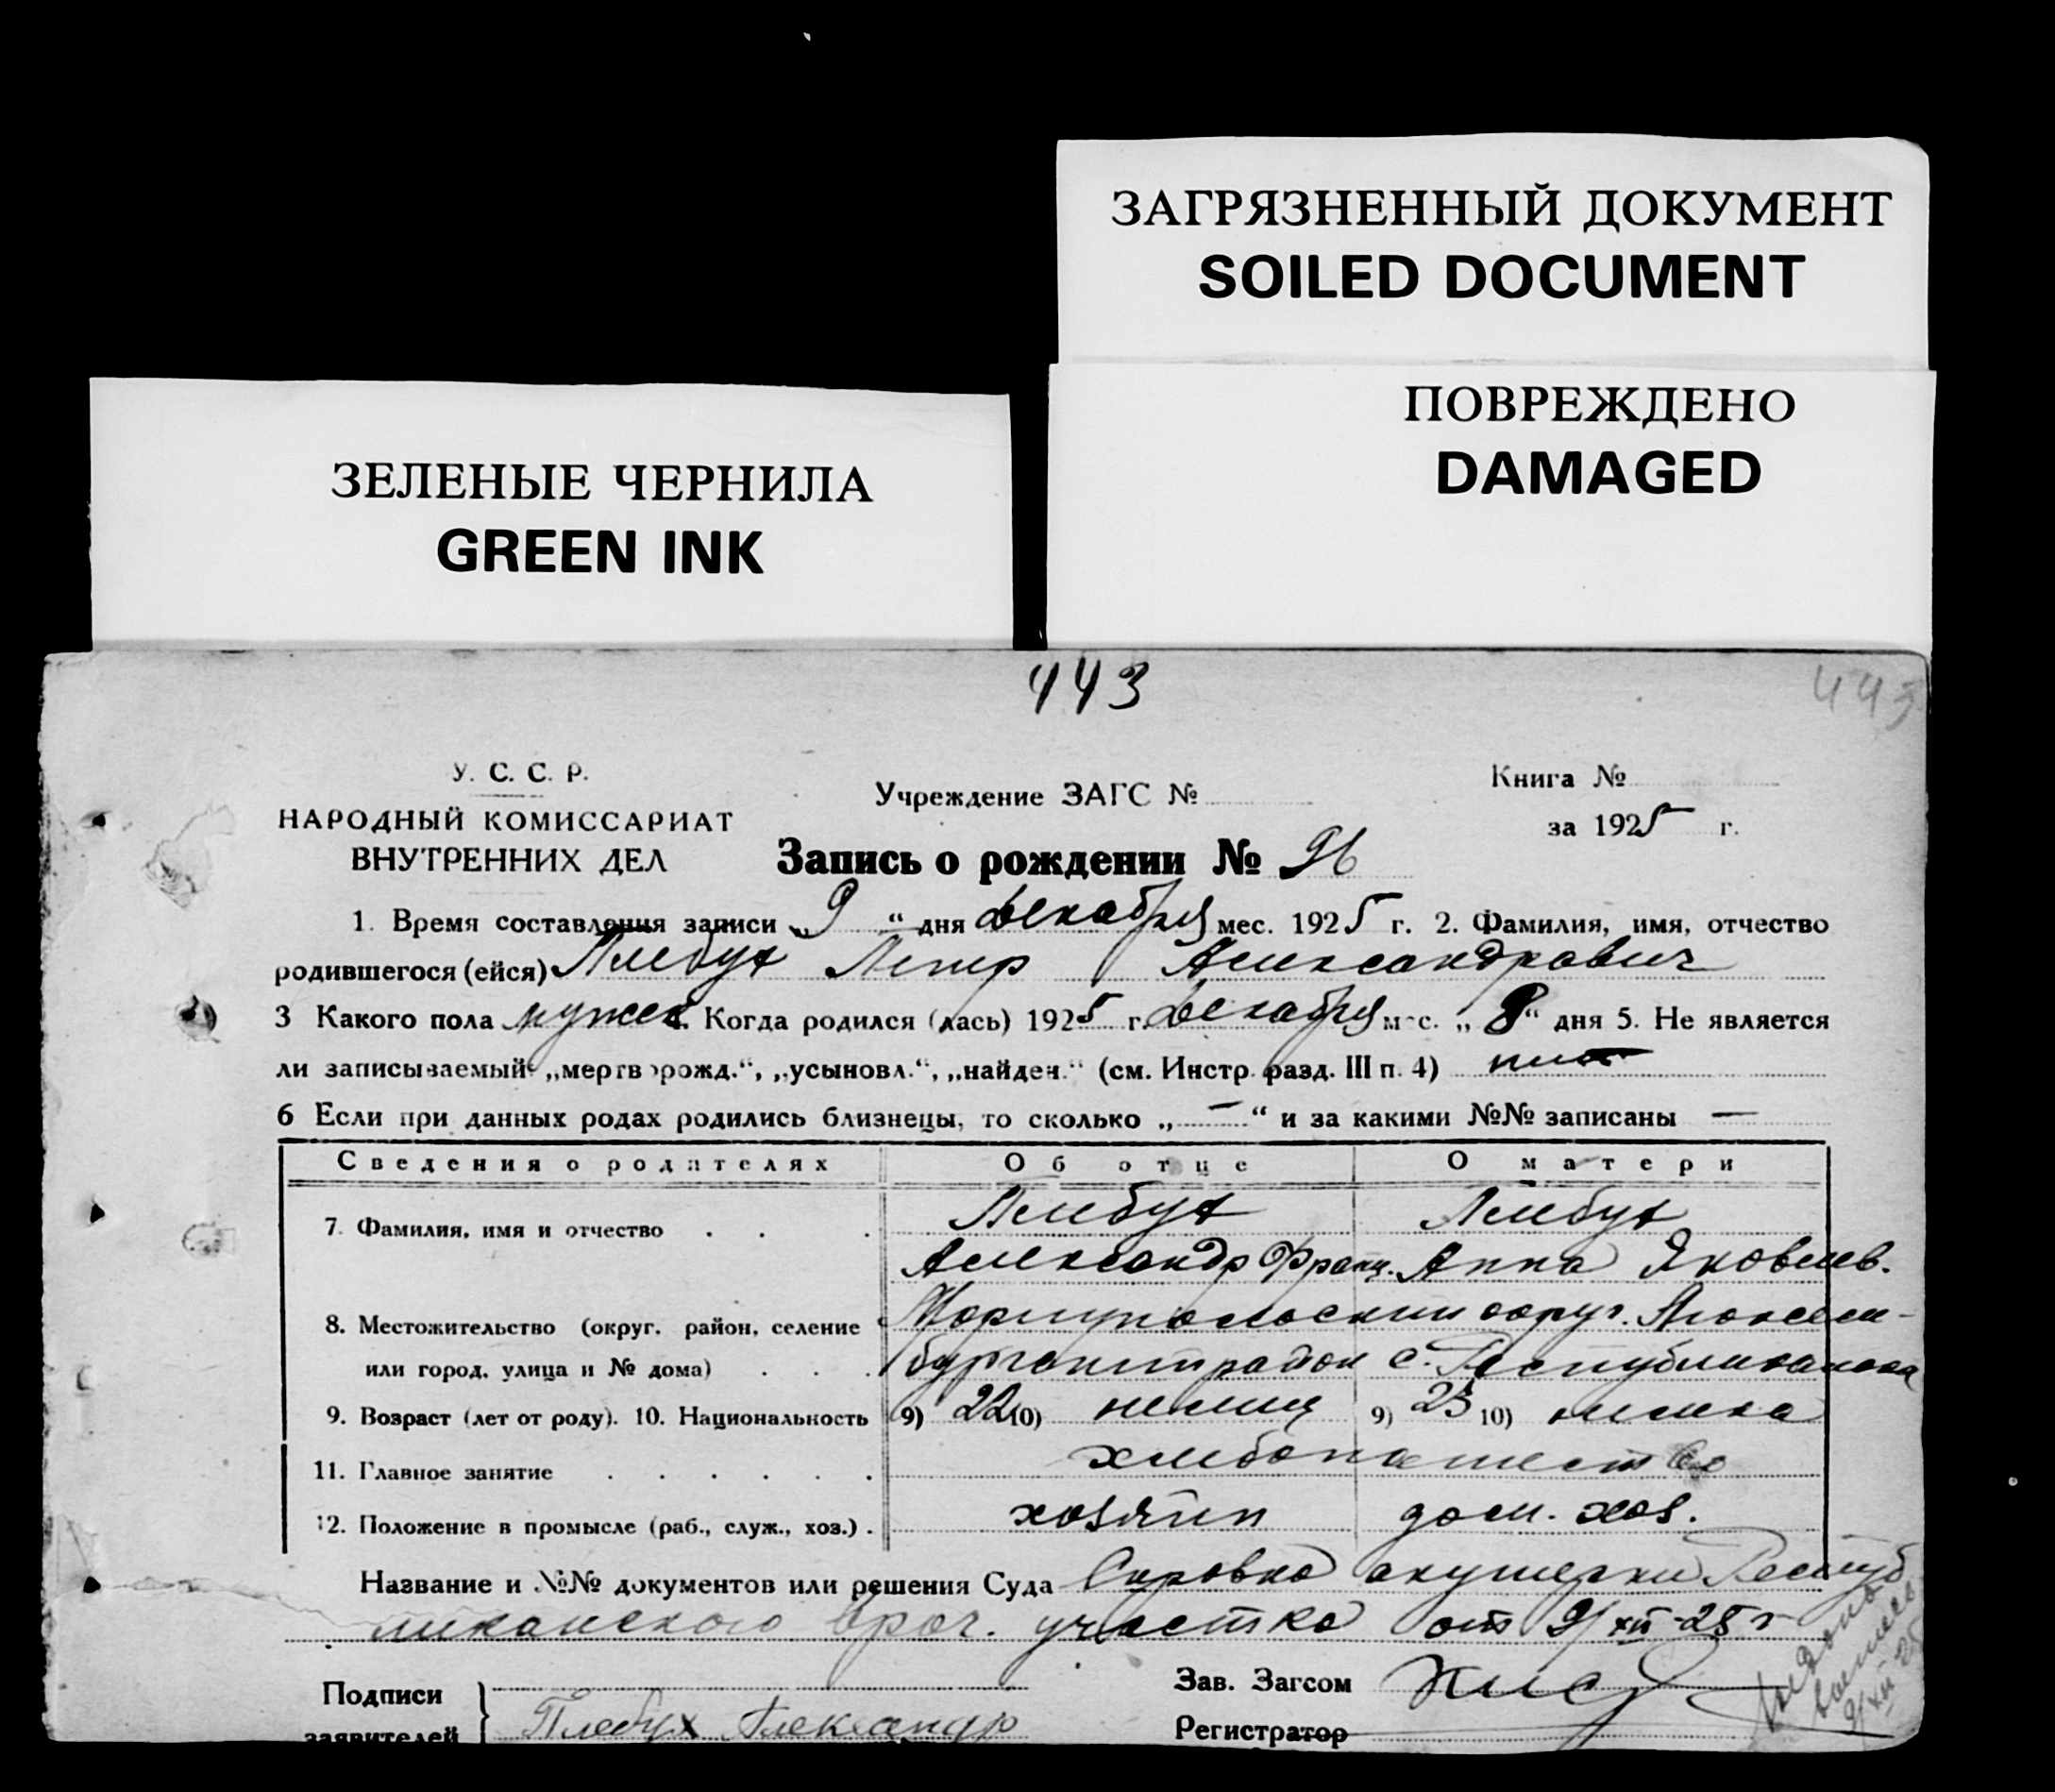 ЗАГРЯЗНЕННЫЙ ДОКУМЕНТ
SOILED DOCUMENT
ПОВРЕЖДЕНО
DAMAGED
ЗЕЛЕНЫЕ ЧЕРНИЛА
GREEN INK
443
443
У. С. С. Р.
НАРОДНЫЙ КОМИССАРИАТ
ВНУТРЕННИХ ДЕЛ
Учреждение ЗАГС №
Книга №
за 1925 г.
Запись о рождении № 96
1. Время составления записи „9“ дня Декабря мес. 1925 г. 2. Фамилия, имя, отчество
родившегося (ейся) Плебух Петр Александрович
3 Какого пола мужск 4. Когда родился (лась) 1925 г. Декабря мес. „8“ дня 5. Не является
ли записываемый „мертворожд.“, „усыновл.“, „найден.“ (см. Инстр. разд. III п. 4) нет
6 Если при данных родах родились близнецы, то сколько „—“ и за какими №№ записаны —
Сведения о родителях Об отце О матери
7. Фамилия, имя и отчество Плебух Плебух
Александр Франц. Анна Яковлев.
8. Местожительство (округ, район, селение Мариупольский округ. Люксем-
или город, улица и № дома) бургский район с. Республикановка
9. Возраст (лет от роду). 10. Национальность 9) 22 10) немец 9) 23 10) немка
11. Главное занятие хлебопашество
12. Положение в промысле (раб., служ., хоз.) хозяин дом. хоз.
Название и №№ документов или решения Суда Справка акушерки Респуб
ликанского врач. участка от 9/XII-25 г
Подписи
заявителей
Плебух Александр
Зав. Загсом
Регистратор
9/XII 25